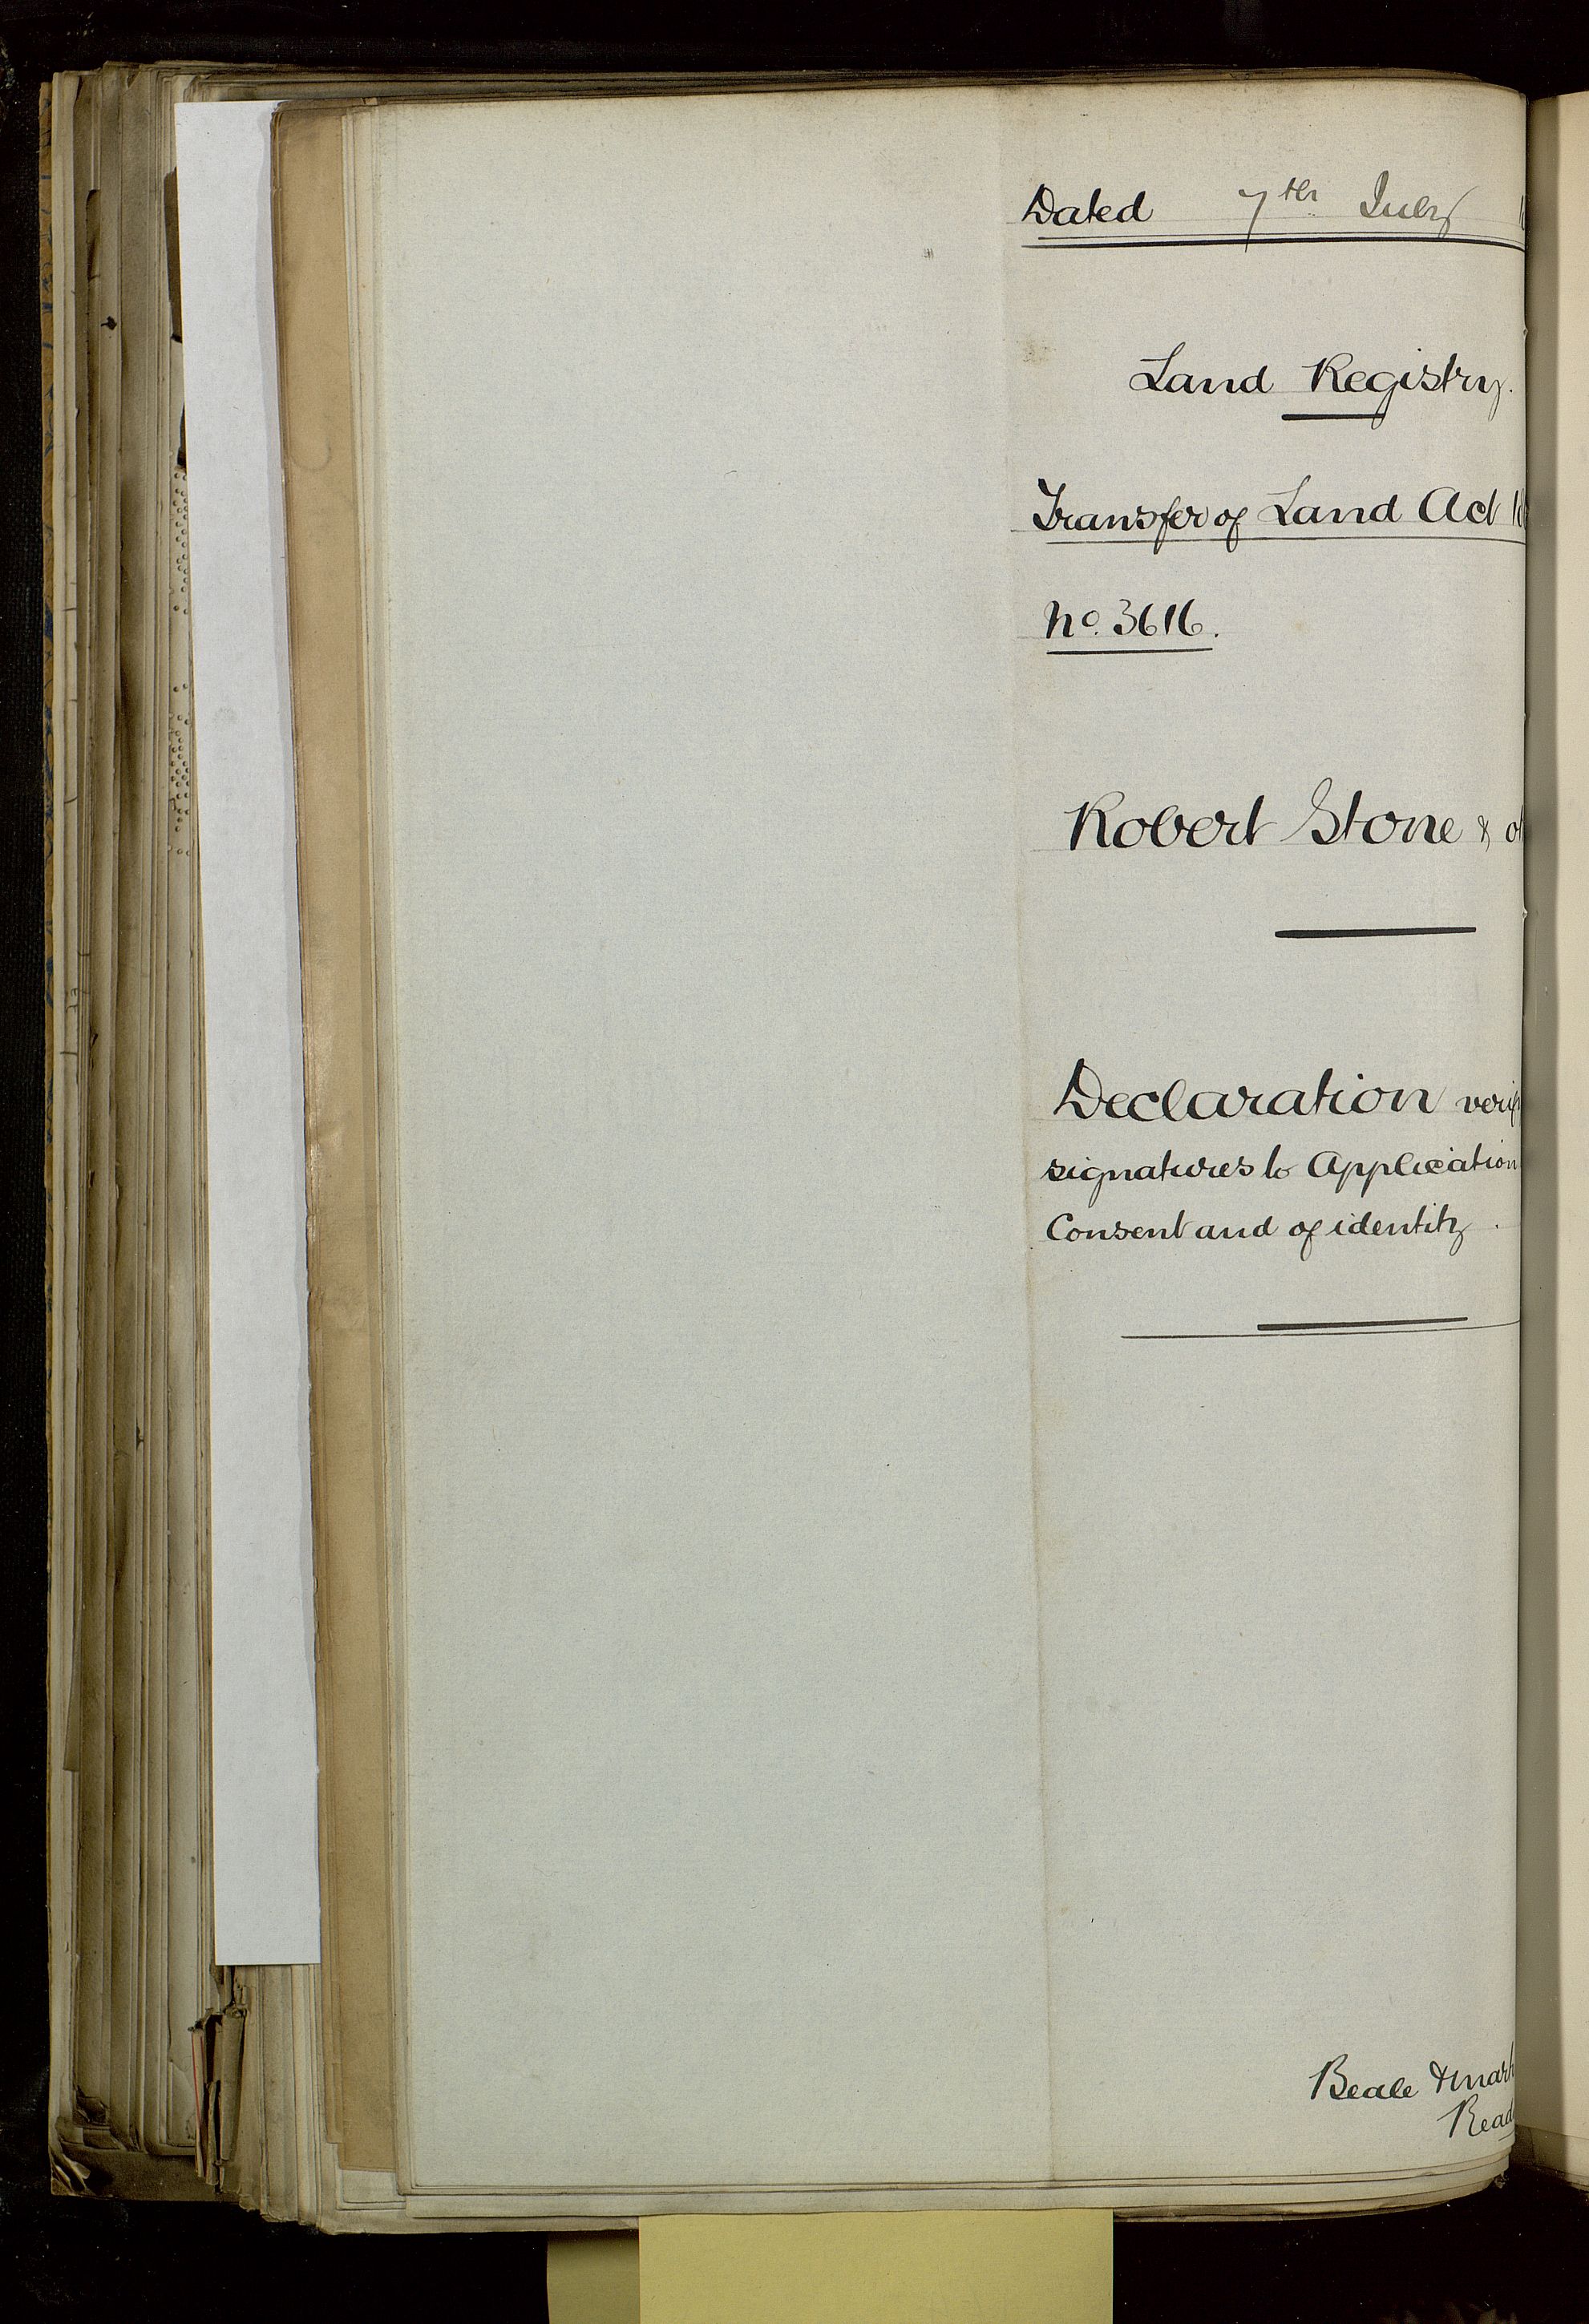 Dated 7th July 1
Land Registry.
Transfer of Land Act 18
No. 3616.
Robert Stone & ot
Declaration verif
signatures to Application
Consent and of identity.
Beale & Mar
Read